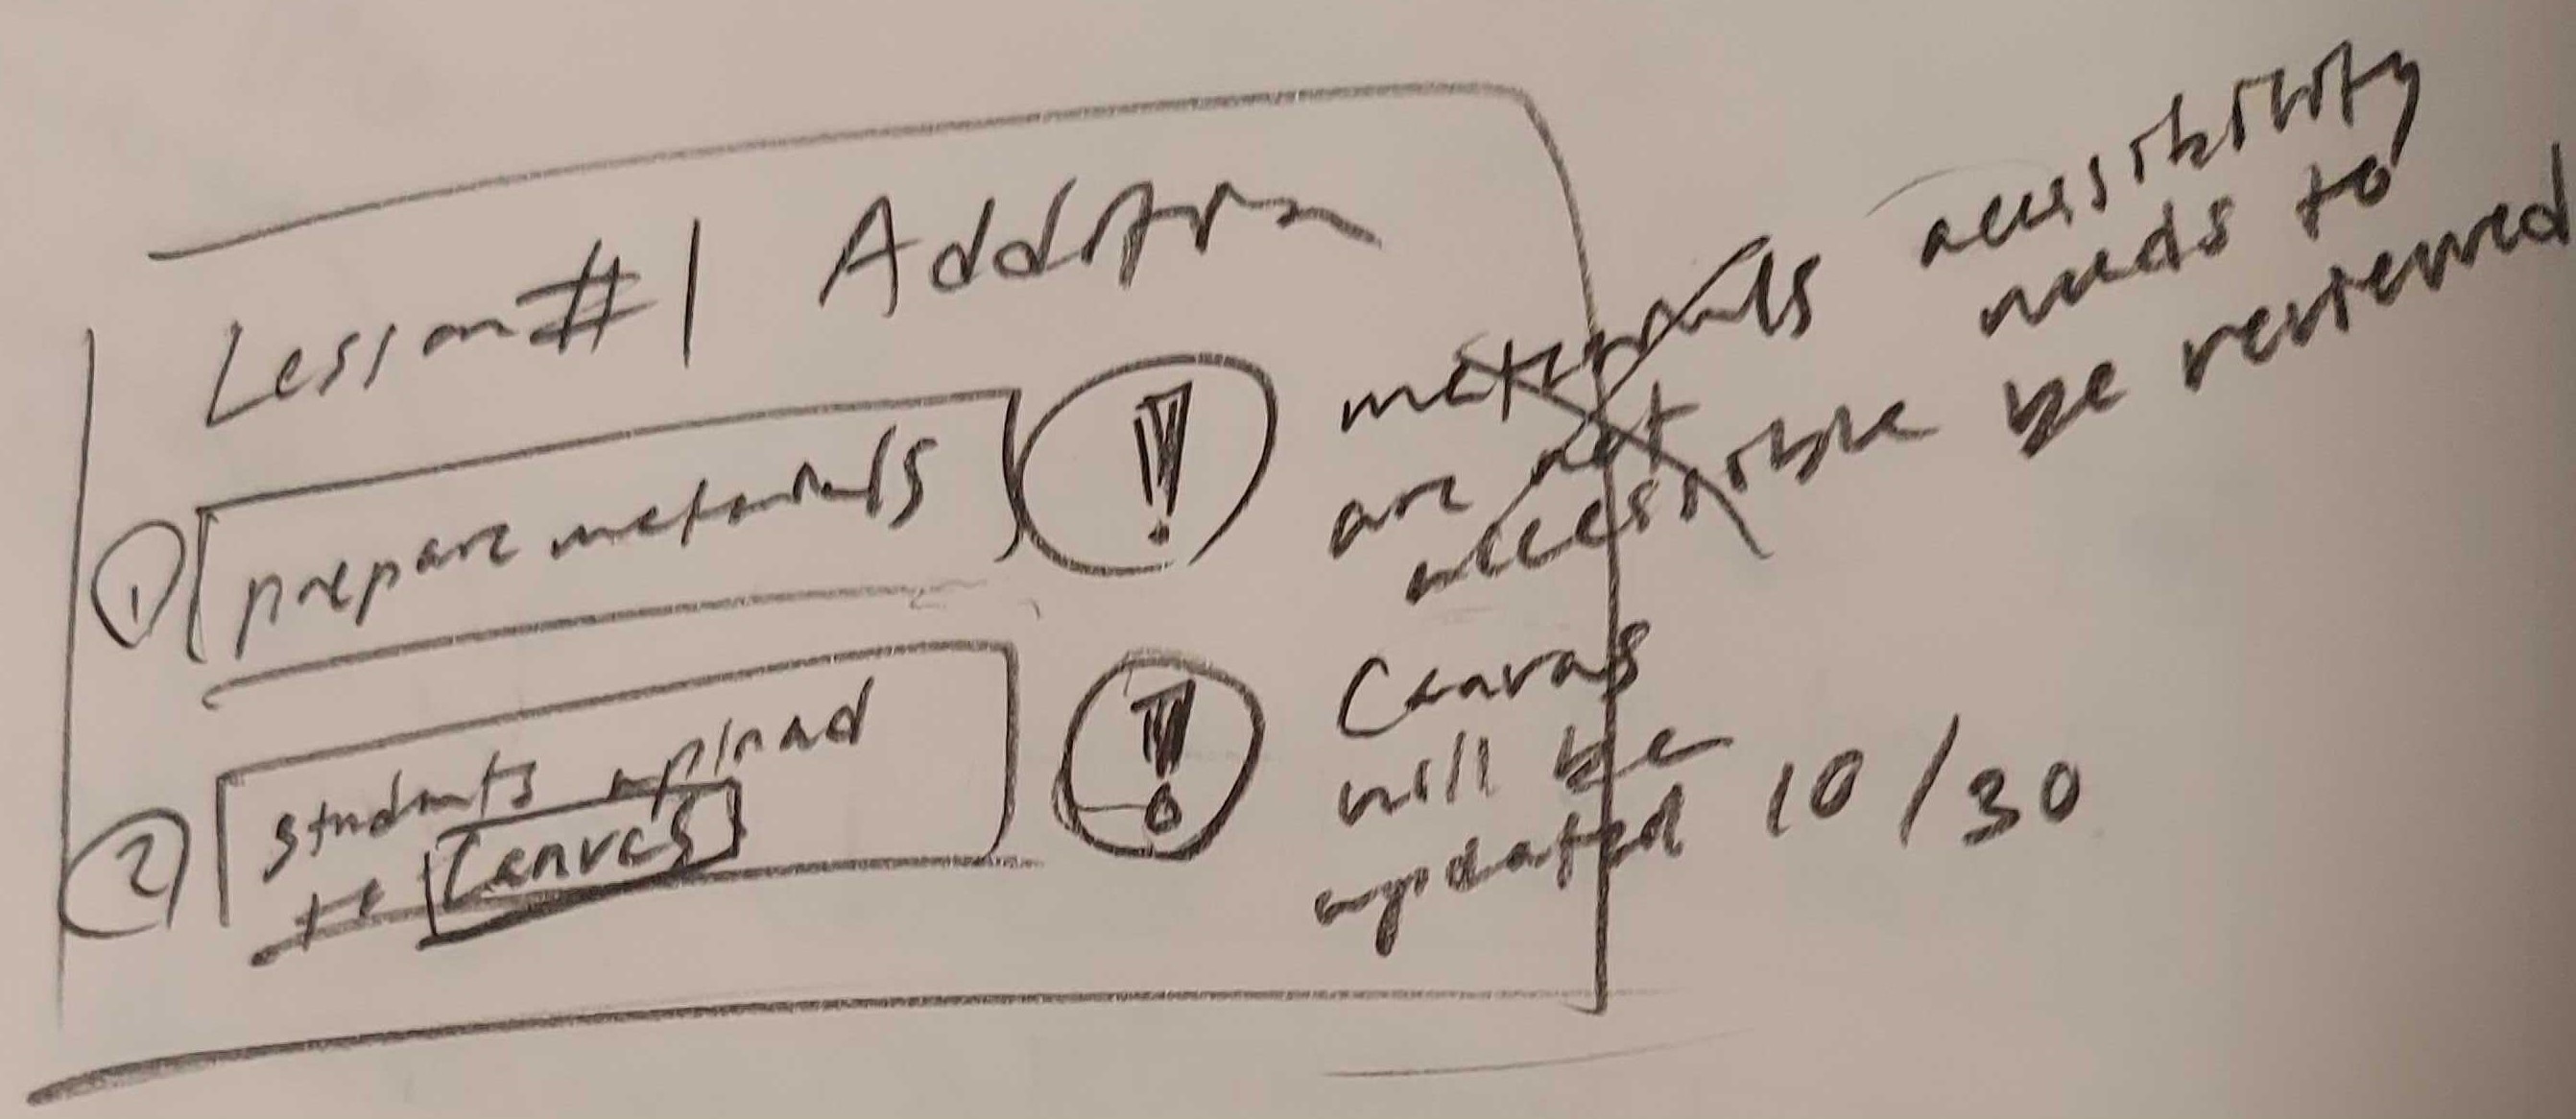 Lesson #1 Addition
① prepare materials
!
materials
are not
accessible
accessibility
needs to
be reviewed
② students upload
to Canvas
!
Canvas
will be
updated 10/30